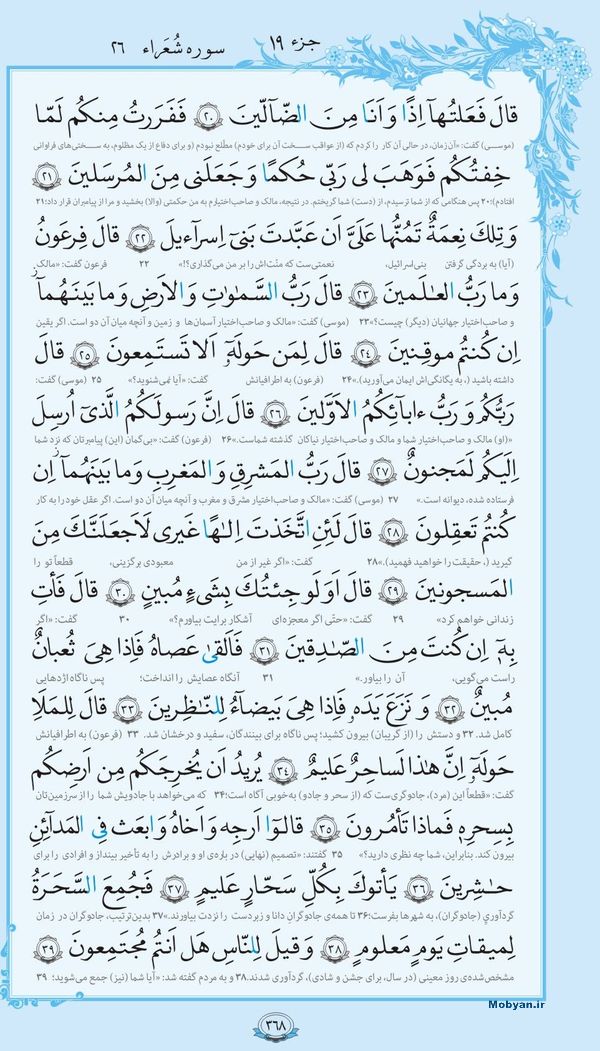 جزء ۱۹
سوره شُعَراء ۲۶
قالَ فَعَلتُهآ اِذًا وَ اَنَا مِنَ الضّآلّينَ ﴿۲۰﴾ فَفَرَرتُ مِنكُم لَمّا
(موسی) گفت: «آن‌زمان، در حالی آن کار را کردم که (از عواقب سخت آن برای خودم) مطلع نبودم (و برای دفاع از یک مظلوم، به سختی‌های فراوانی
خِفتُكُم فَوَهَبَ لی رَبّی حُكمًا وَ جَعَلَنی مِنَ المُرسَلينَ ﴿۲۱﴾
افتادم)؛۲۰ پس هنگامی که از شما ترسیدم، از (دست) شما گریختم. در نتیجه، مالک و صاحب‌اختیارم به من حکمتی (والا) بخشید و مرا از پیامبران قرار داد؛۲۱
وَ تِلكَ نِعمَةٌ تَمُنُّها عَلَیَّ اَن عَبَّدتَ بَنیٓ اِسرآءيلَ ﴿۲۲﴾ قالَ فِرعَونُ
(آیا) به بردگی گرفتن بنی‌اسرائیل، نعمتی‌ست که منّت‌اش را بر من می‌گذاری؟!» ۲۲ فرعون گفت: «مالک
وَ ما رَبُّ العـٰلَمينَ ﴿۲۳﴾ قالَ رَبُّ السَّمـٰوٰتِ وَ الاَرضِ وَ ما بَينَهُمآ
و صاحب‌اختیار جهانیان (دیگر) چیست؟»۲۳ (موسی) گفت: «مالک و صاحب‌اختیار آسمان‌ها و زمین و آنچه میان آن دو است. اگر یقین
اِن كُنتُم موقِنينَ ﴿۲۴﴾ قالَ لِمَن حَولَهٓ اَلا تَستَمِعونَ ﴿۲۵﴾ قالَ
داشته باشید (، به یگانگی‌اش ایمان می‌آورید).»۲۴ (فرعون) به اطرافیانش گفت: «آیا نمی‌شنوید؟» ۲۵ (موسی) گفت:
رَبُّكُم وَ رَبُّ ءابآئِكُمُ الاَوَّلينَ ﴿۲۶﴾ قالَ اِنَّ رَسولَكُمُ الَّذیٓ اُرسِلَ
«(او) مالک و صاحب‌اختیار شما و مالک و صاحب‌اختیار نیاکان گذشته شماست.»۲۶ (فرعون) گفت: «بی‌گمان (این) پیامبرتان که نزد شما
اِلَيكُم لَمَجنونٌ ﴿۲۷﴾ قالَ رَبُّ المَشرِقِ وَ المَغرِبِ وَ ما بَينَهُمآ اِن
فرستاده شده، دیوانه است.» ۲۷ (موسی) گفت: «مالک و صاحب‌اختیار مشرق و مغرب و آنچه میان آن دو است. اگر عقل خود را به کار
كُنتُم تَعقِلونَ ﴿۲۸﴾ قالَ لَئِنِ اتَّخَذتَ اِلـٰهًا غَيری لَاَجعَلَنَّكَ مِنَ
گیرید (، حقیقت را خواهید فهمید).»۲۸ گفت: «اگر غیر از من معبودی برگزینی، قطعاً تو را
المَسجونينَ ﴿۲۹﴾ قالَ اَوَلَو جِئتُكَ بِشَیءٍ مُبينٍ ﴿۳۰﴾ قالَ فَأتِ
زندانی خواهم کرد» ۲۹ گفت: «حتّی اگر معجزه‌ای آشکار برایت بیاورم؟» ۳۰ گفت: «اگر
بِهٓ اِن كُنتَ مِنَ الصّـٰدِقينَ ﴿۳۱﴾ فَاَلقیٰ عَصاهُ فَاِذا هِیَ ثُعبانٌ
راست می‌گویی، آن را بیاور.» ۳۱ آنگاه عصایش را انداخت؛ پس ناگاه اژدهایی
مُبينٌ ﴿۳۲﴾ وَ نَزَعَ يَدَهٗ فَاِذا هِیَ بَيضآءُ لِلنّـٰظِرينَ ﴿۳۳﴾ قالَ لِلمَلَاِ
کامل شد. ۳۲ و دستش را (از گریبان) بیرون کشید؛ پس ناگاه برای بینندگان، سفید و درخشان شد. ۳۳ (فرعون) به اطرافیانش
حَولَهٓ اِنَّ هـٰذا لَساحِرٌ عَليمٌ ﴿۳۴﴾ يُريدُ اَن يُخرِجَكُم مِن اَرضِكُم
گفت: «قطعاً این (مرد)، جادوگری‌ست که (از سحر و جادو) به‌خوبی آگاه است؛۳۴ که می‌خواهد با جادویش شما را از سرزمین‌تان
بِسِحرِهٖ فَماذا تَأمُرونَ ﴿۳۵﴾ قالوٓا اَرجِه وَ اَخاهُ وَ ابعَث فِی المَدآئِنِ
بیرون کند. بنابراین، شما چه نظری دارید؟» ۳۵ گفتند: «تصمیم (نهایی) درباره‌ی او و برادرش را به تأخیر بینداز و افرادی را برای
حـٰشِرينَ ﴿۳۶﴾ يَأتوكَ بِكُلِّ سَحّارٍ عَليمٍ ﴿۳۷﴾ فَجُمِعَ السَّحَرَةُ
گردآوری (جادوگران)، به شهرها بفرست؛۳۶ تا همه‌ی جادوگرانِ دانا و زبردست را نزدت بیاورند.»۳۷ بدین‌ترتیب، جادوگران در زمان
لِميقاتِ يَومٍ مَعلومٍ ﴿۳۸﴾ وَ قيلَ لِلنّاسِ هَل اَنتُم مُجتَمِعونَ ﴿۳۹﴾
مشخص‌شده‌ی روز معینی (در سال، برای جشن و شادی)، گردآوری شدند.۳۸ و به مردم گفته شد: «آیا شما (نیز) جمع می‌شوید؛ ۳۹
۳۶۸
Mobyan.ir